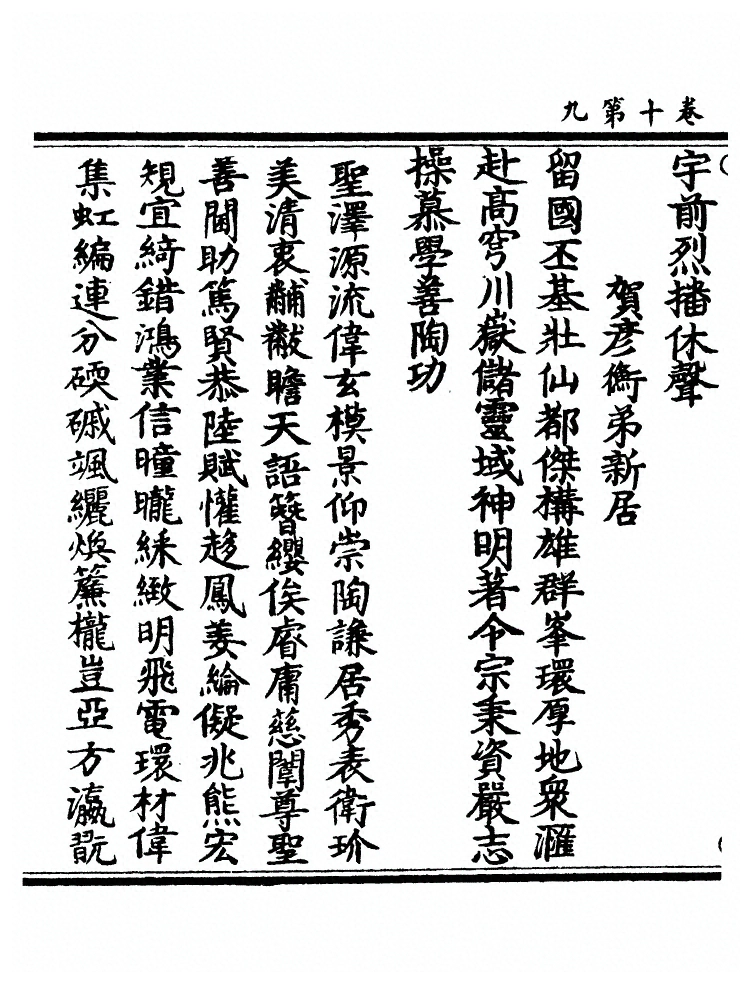 九第十卷
宇前烈播休聲
賀彦衡弟新居
留國丕基壯仙都傑構雄群峯環厚地衆滙
赴高穹川嶽儲靈域神明著令宗秉資嚴志
操慕學善陶功
聖澤源流偉玄模景仰崇陶謙居秀表衛玠
美清衷黼黻瞻天語簪纓俟睿庸慈闈尊聖
善閫助篤賢恭陸賦懽趍鳳姜綸儗兆熊宏
規宜綺錯鴻業信曈曨綵緻明飛電環材偉
集虹編連分碝磩颯纚煥簾櫳豈亞方瀛翫